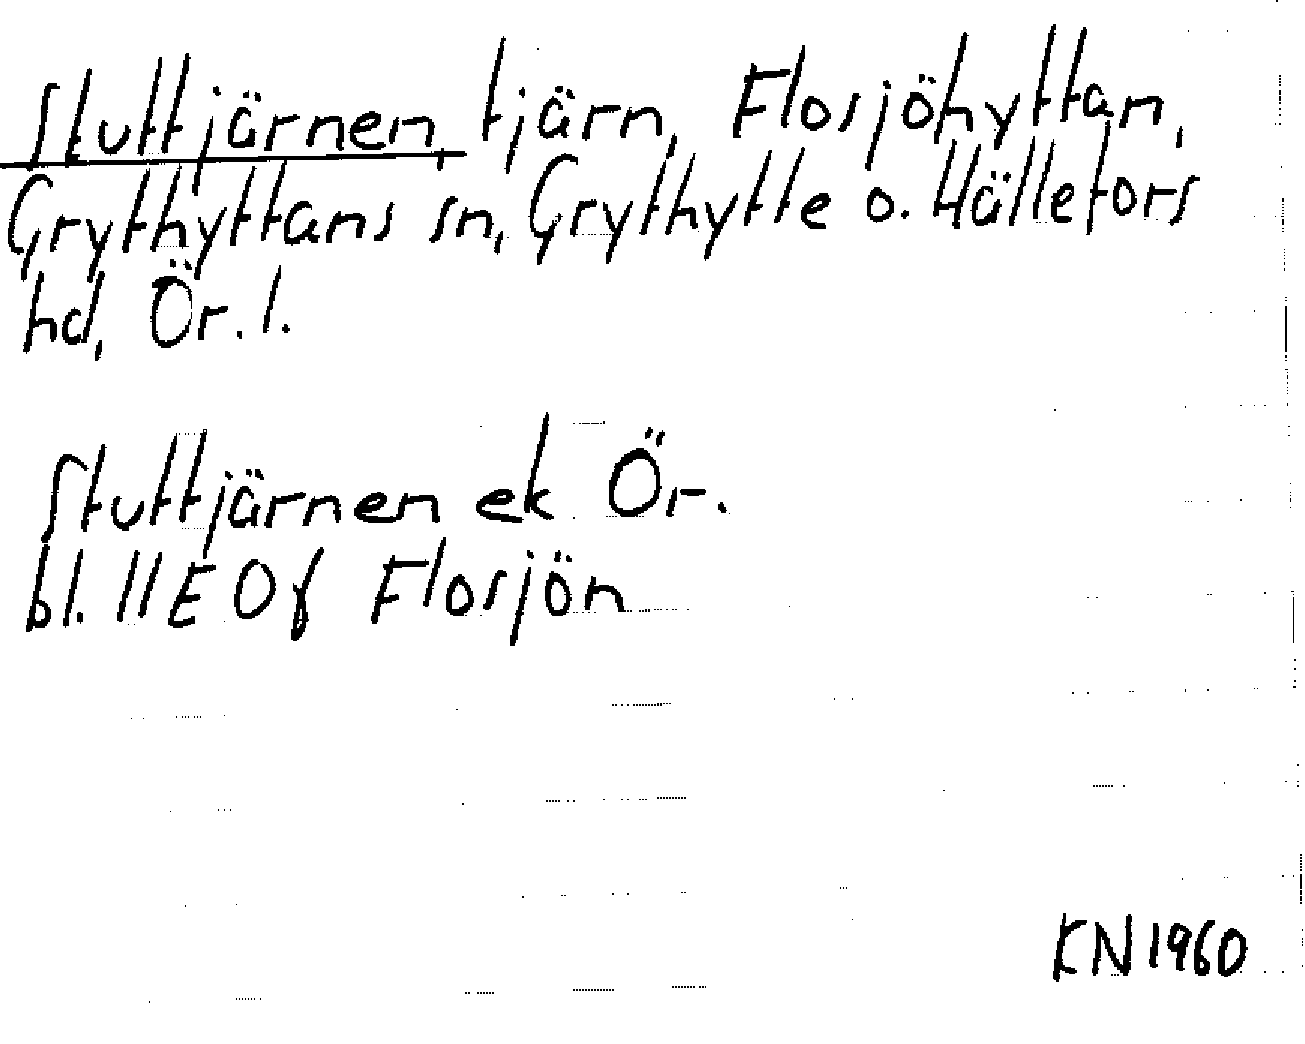 Stuttjärnen, tjärn, Flosjöhyttan,
Grythyttans sn, Grythytte o. Hällefors
hd, Ör. l.
Stuttjärnen ek Ör.
bl. 11E 0f Flosjön
KN 1960